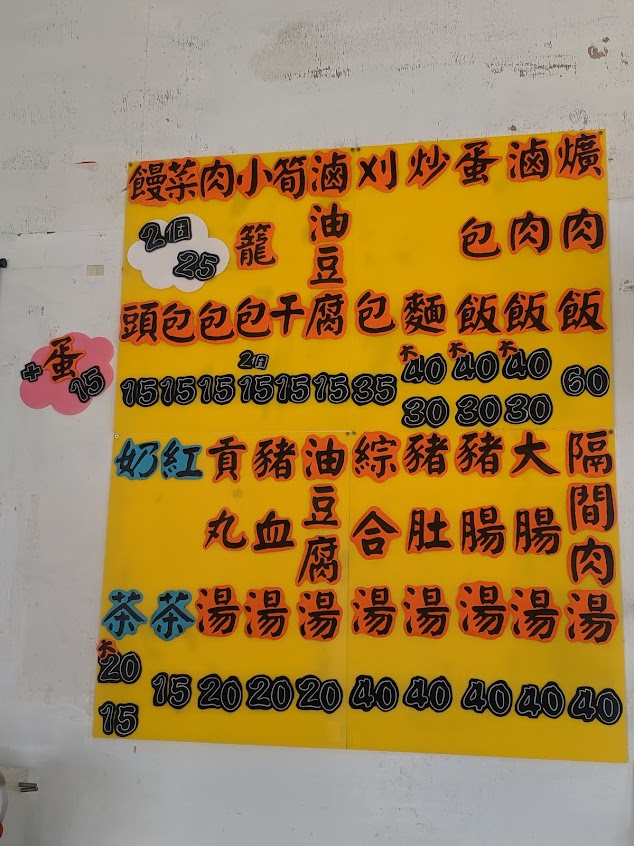 爌肉飯 60
滷肉飯 大40 30
蛋包飯 大40 30
炒麵 大40 30
刈包 35
滷油豆腐 15
筍干 15
小籠包 2個 15
肉包 15
菜包 15
饅頭 15
2個 25
+蛋 15
隔間肉湯 40
大腸湯 40
豬腸湯 40
豬肚湯 40
綜合湯 40
油豆腐湯 20
豬血湯 20
貢丸湯 20
紅茶 15
奶茶 大20 15